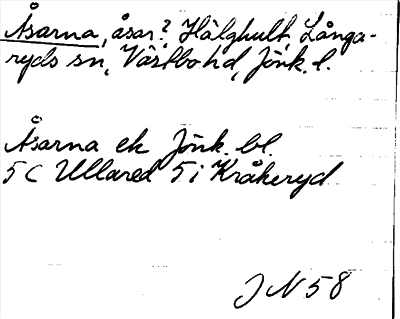 Åsarna, åsar?, Hälghult, Långa-
ryds sn, Västbo hd, Jönk. l.
Åsarna ek Jönk. bl.
5 C Ullared 5 i Kråkeryd
J N 58